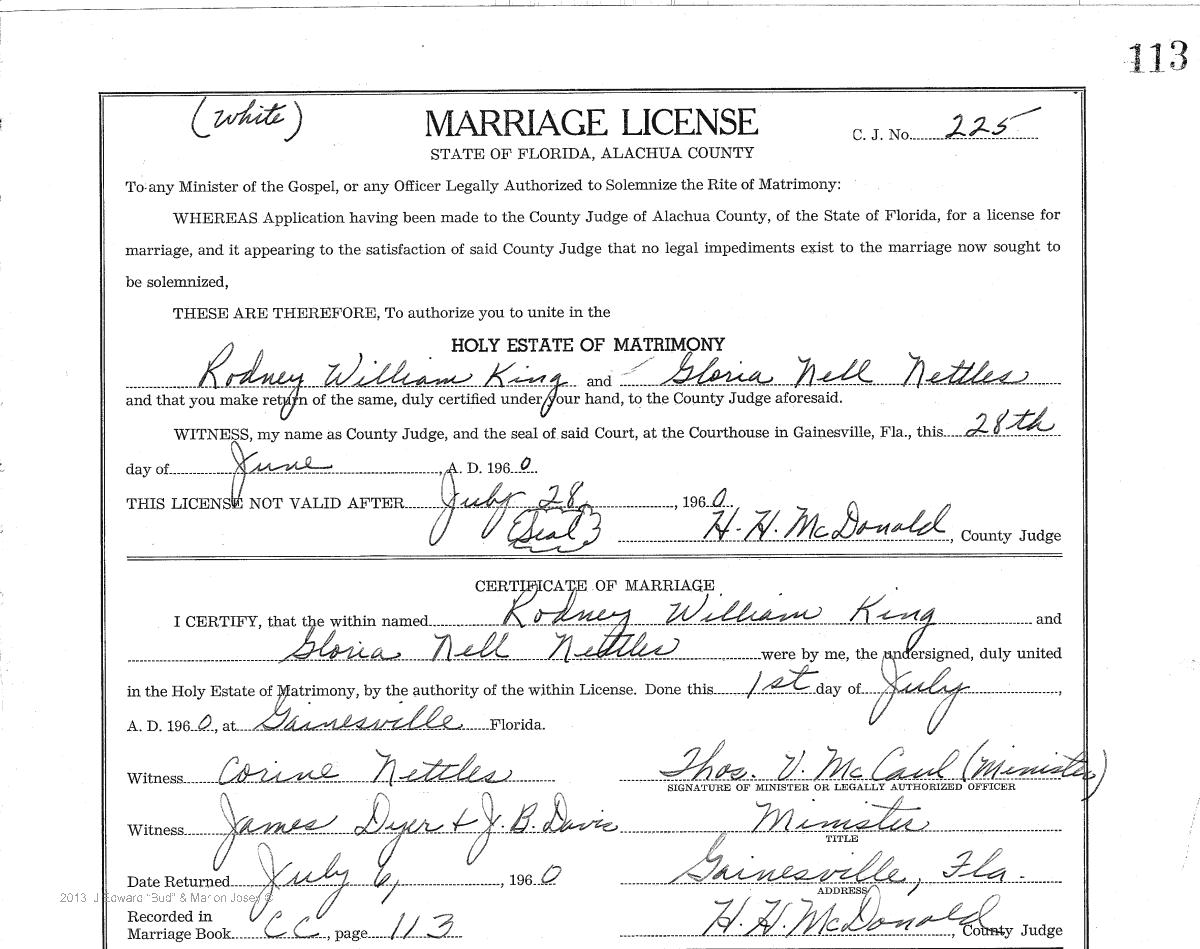 113
(White)
MARRIAGE LICENSE
C. J. No. 225
STATE OF FLORIDA, ALACHUA COUNTY
To any Minister of the Gospel, or any Officer Legally Authorized to Solemnize the Rite of Matrimony:
WHEREAS Application having been made to the County Judge of Alachua County, of the State of Florida, for a license for
marriage, and it appearing to the satisfaction of said County Judge that no legal impediments exist to the marriage now sought to
be solemnized,
THESE ARE THEREFORE, To authorize you to unite in the
HOLY ESTATE OF MATRIMONY
Rodney William King and Gloria Nell Nettles
and that you make return of the same, duly certified under your hand, to the County Judge aforesaid.
WITNESS, my name as County Judge, and the seal of said Court, at the Courthouse in Gainesville, Fla., this 28th
day of June, A. D. 1960
THIS LICENSE NOT VALID AFTER July 28, 1960
(Seal) H. H. McDonald, County Judge
CERTIFICATE OF MARRIAGE
I CERTIFY, that the within named Rodney William King and
Gloria Nell Nettles were by me, the undersigned, duly united
in the Holy Estate of Matrimony, by the authority of the within License. Done this 1st day of July,
A. D. 1960, at Gainesville Florida.
Witness Corine Nettles Thos. V. McCaul (Minister)
SIGNATURE OF MINISTER OR LEGALLY AUTHORIZED OFFICER
Witness James Dyer & J. B. Davis Minister
TITLE
Date Returned July 6, 1960 Gainesville, Fla.
ADDRESS
2013 J Edward "Bud" & Marion Josey ©
Recorded in
Marriage Book CC, page 113 H. H. McDonald, County Judge